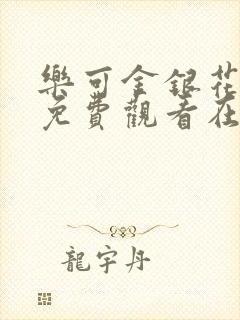 樂可金銀花
免費觀看在
龍宇丹